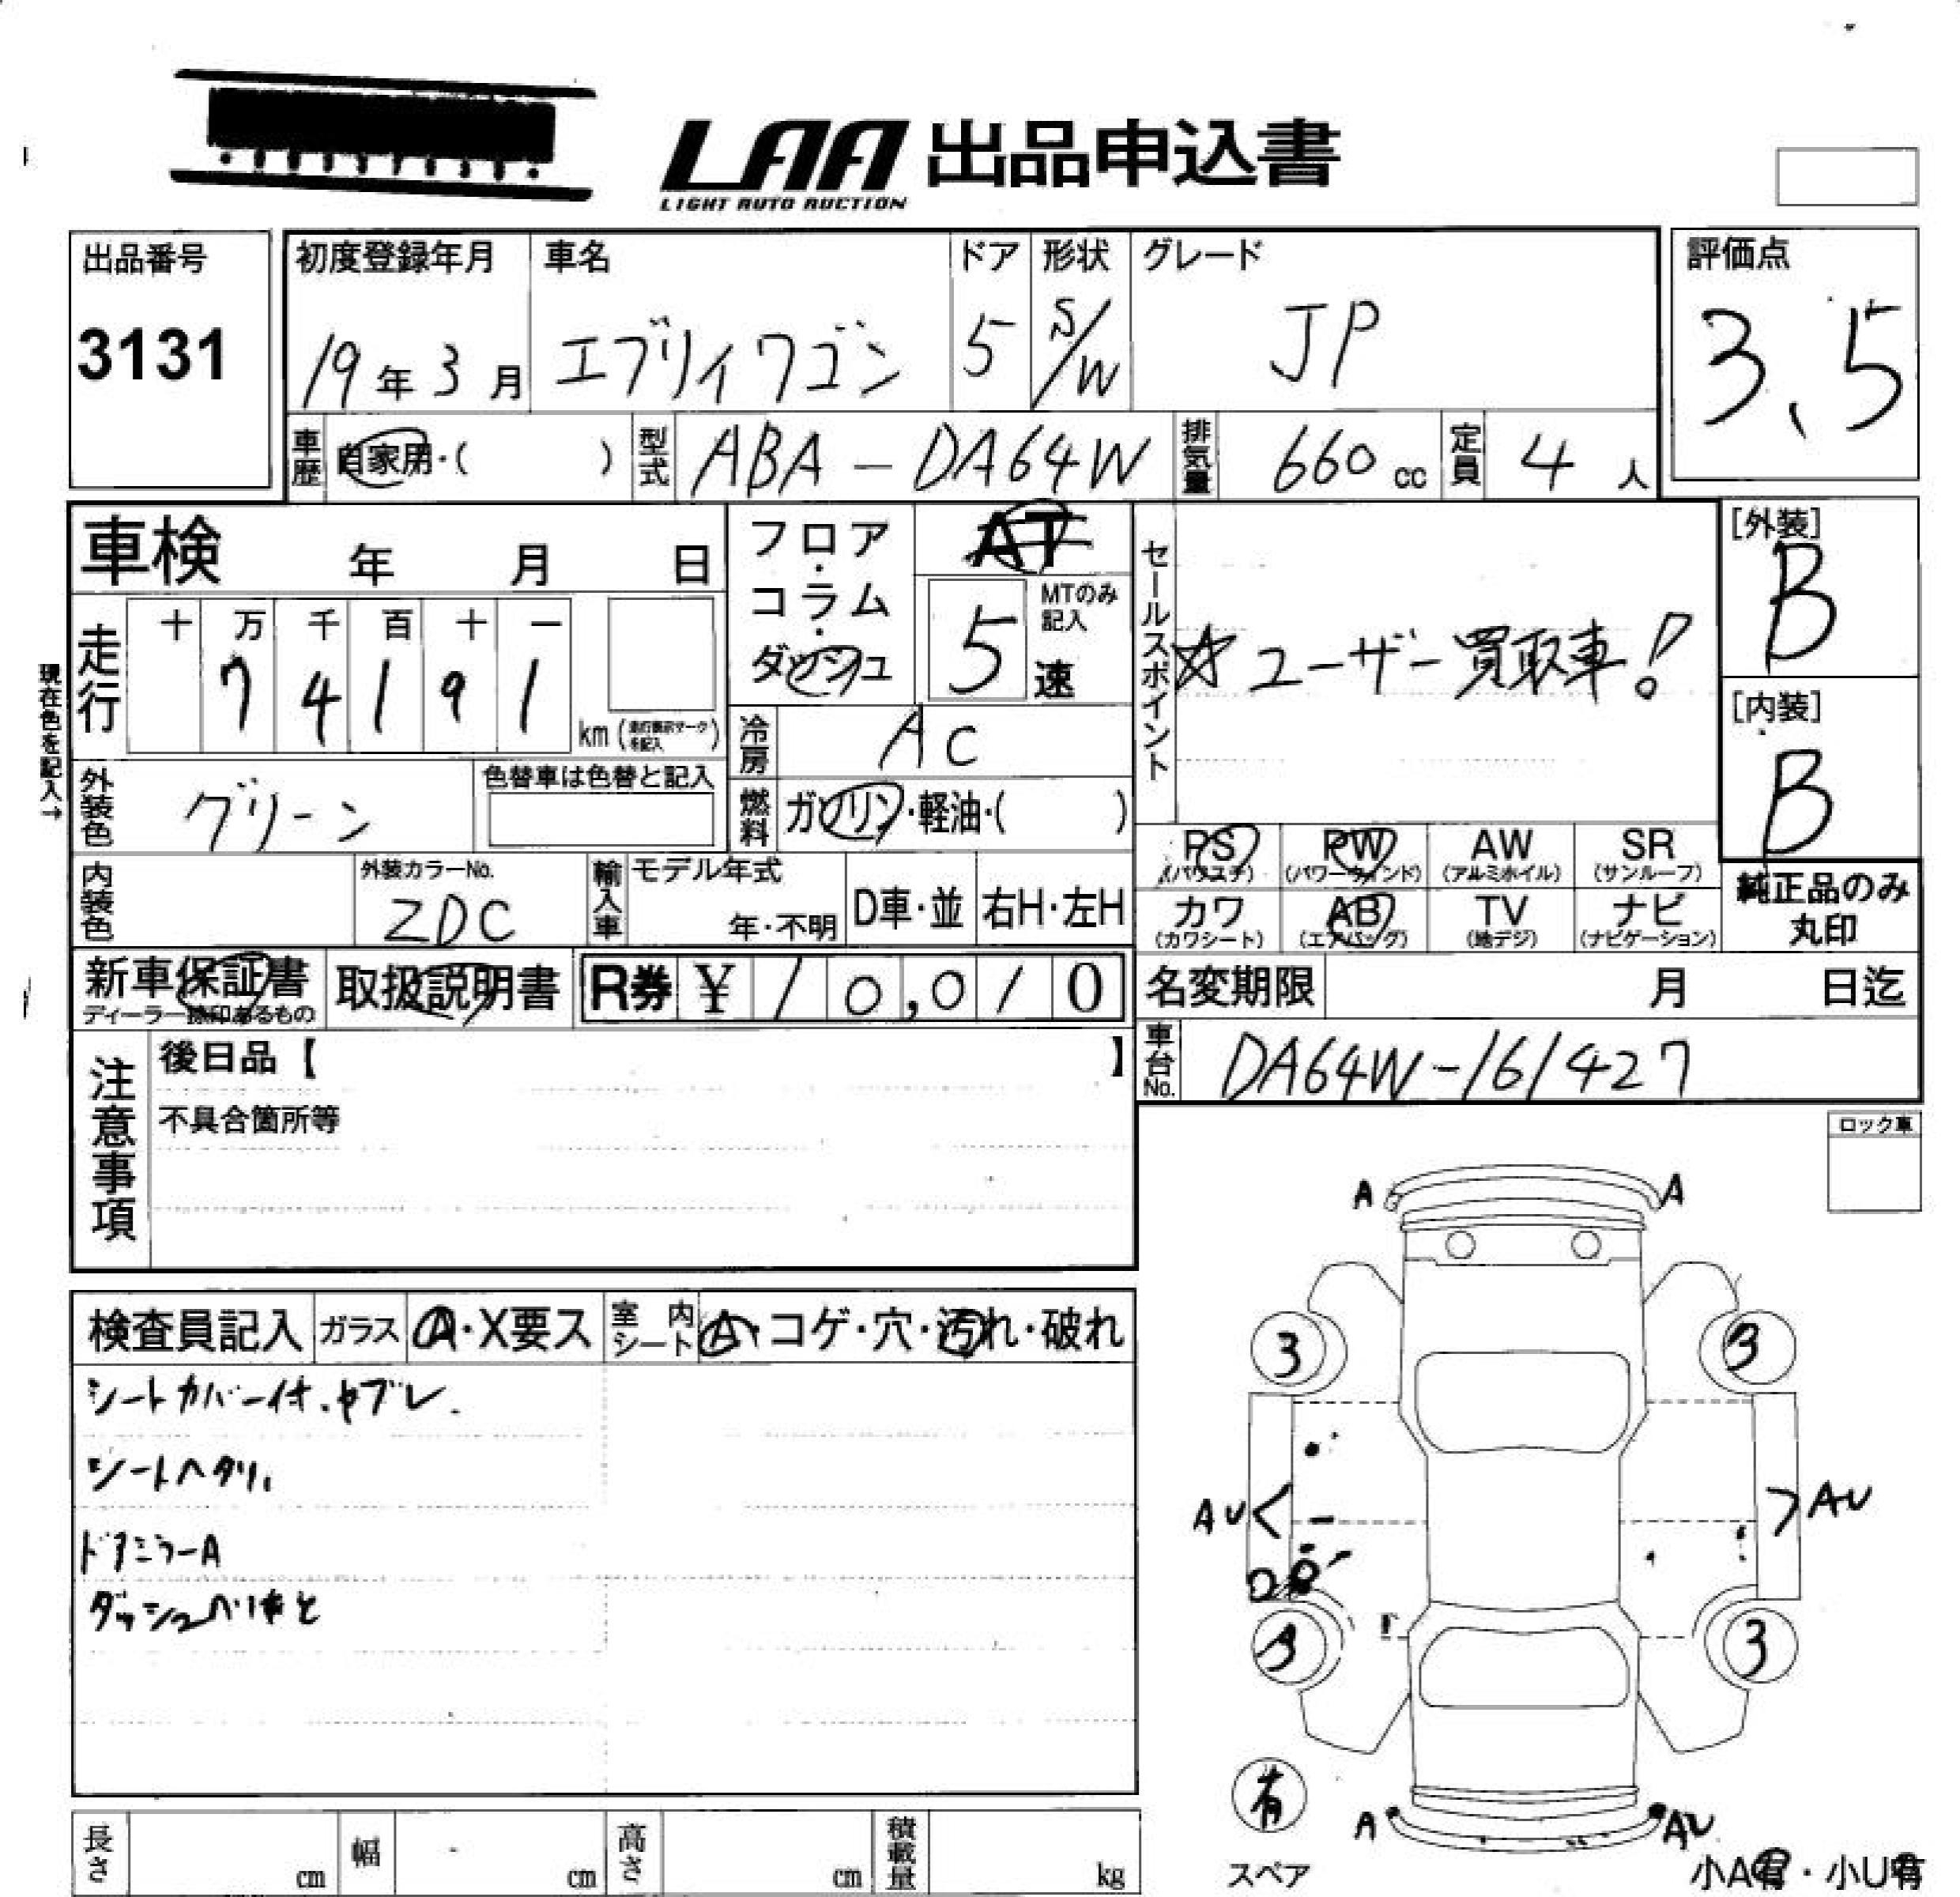 LAA 出品申込書
LIGHT AUTO AUCTION
出品番号
3131
初度登録年月
19年3月
車名
エブリイワゴン
ドア
5
形状
S/W
グレード
JP
評価点
3.5
車歴
自家用・( )
型式
ABA-DA64W
排気量
660cc
定員
4人
車検 年 月 日
フロア・コラム・ダッシュ
AT
5速
MTのみ記入
セールスポイント
☆ユーザー買取車!
[外装]
B
[内装]
B
現在色を記入→
走行
十 万 千 百 十 一
7 4 1 9 1
km(走行表示マークを記入)
冷房
AC
外装色
グリーン
色替車は色替と記入
燃料
ガソリン・軽油・( )
内装色
外装カラーNo.
ZDC
輸入車
モデル年式
年・不明
D車・並
右H・左H
PS
(パワステ)
PW
(パワーウインド)
AW
(アルミホイル)
SR
(サンルーフ)
カワ
(カワシート)
AB
(エアバッグ)
TV
(地デジ)
ナビ
(ナビゲーション)
純正品のみ
丸印
新車保証書
ディーラー捺印あるもの
取扱説明書
R券 ¥10,010
名変期限 月 日迄
車台No.
DA64W-161427
注意事項
後日品【 】
不具合箇所等
ロック車
検査員記入
ガラス
A・X要ス
室内シート
A・コゲ・穴・汚れ・破れ
シートカバー付.ヤブレ.
シートヘタリ.
ドアミラーA
ダッシュハリあと
A
A
3
3
AU
AU
3
3
有
スペア
A
AU
小A有・小U有
長さ cm
幅 cm
高さ cm
積載量 kg